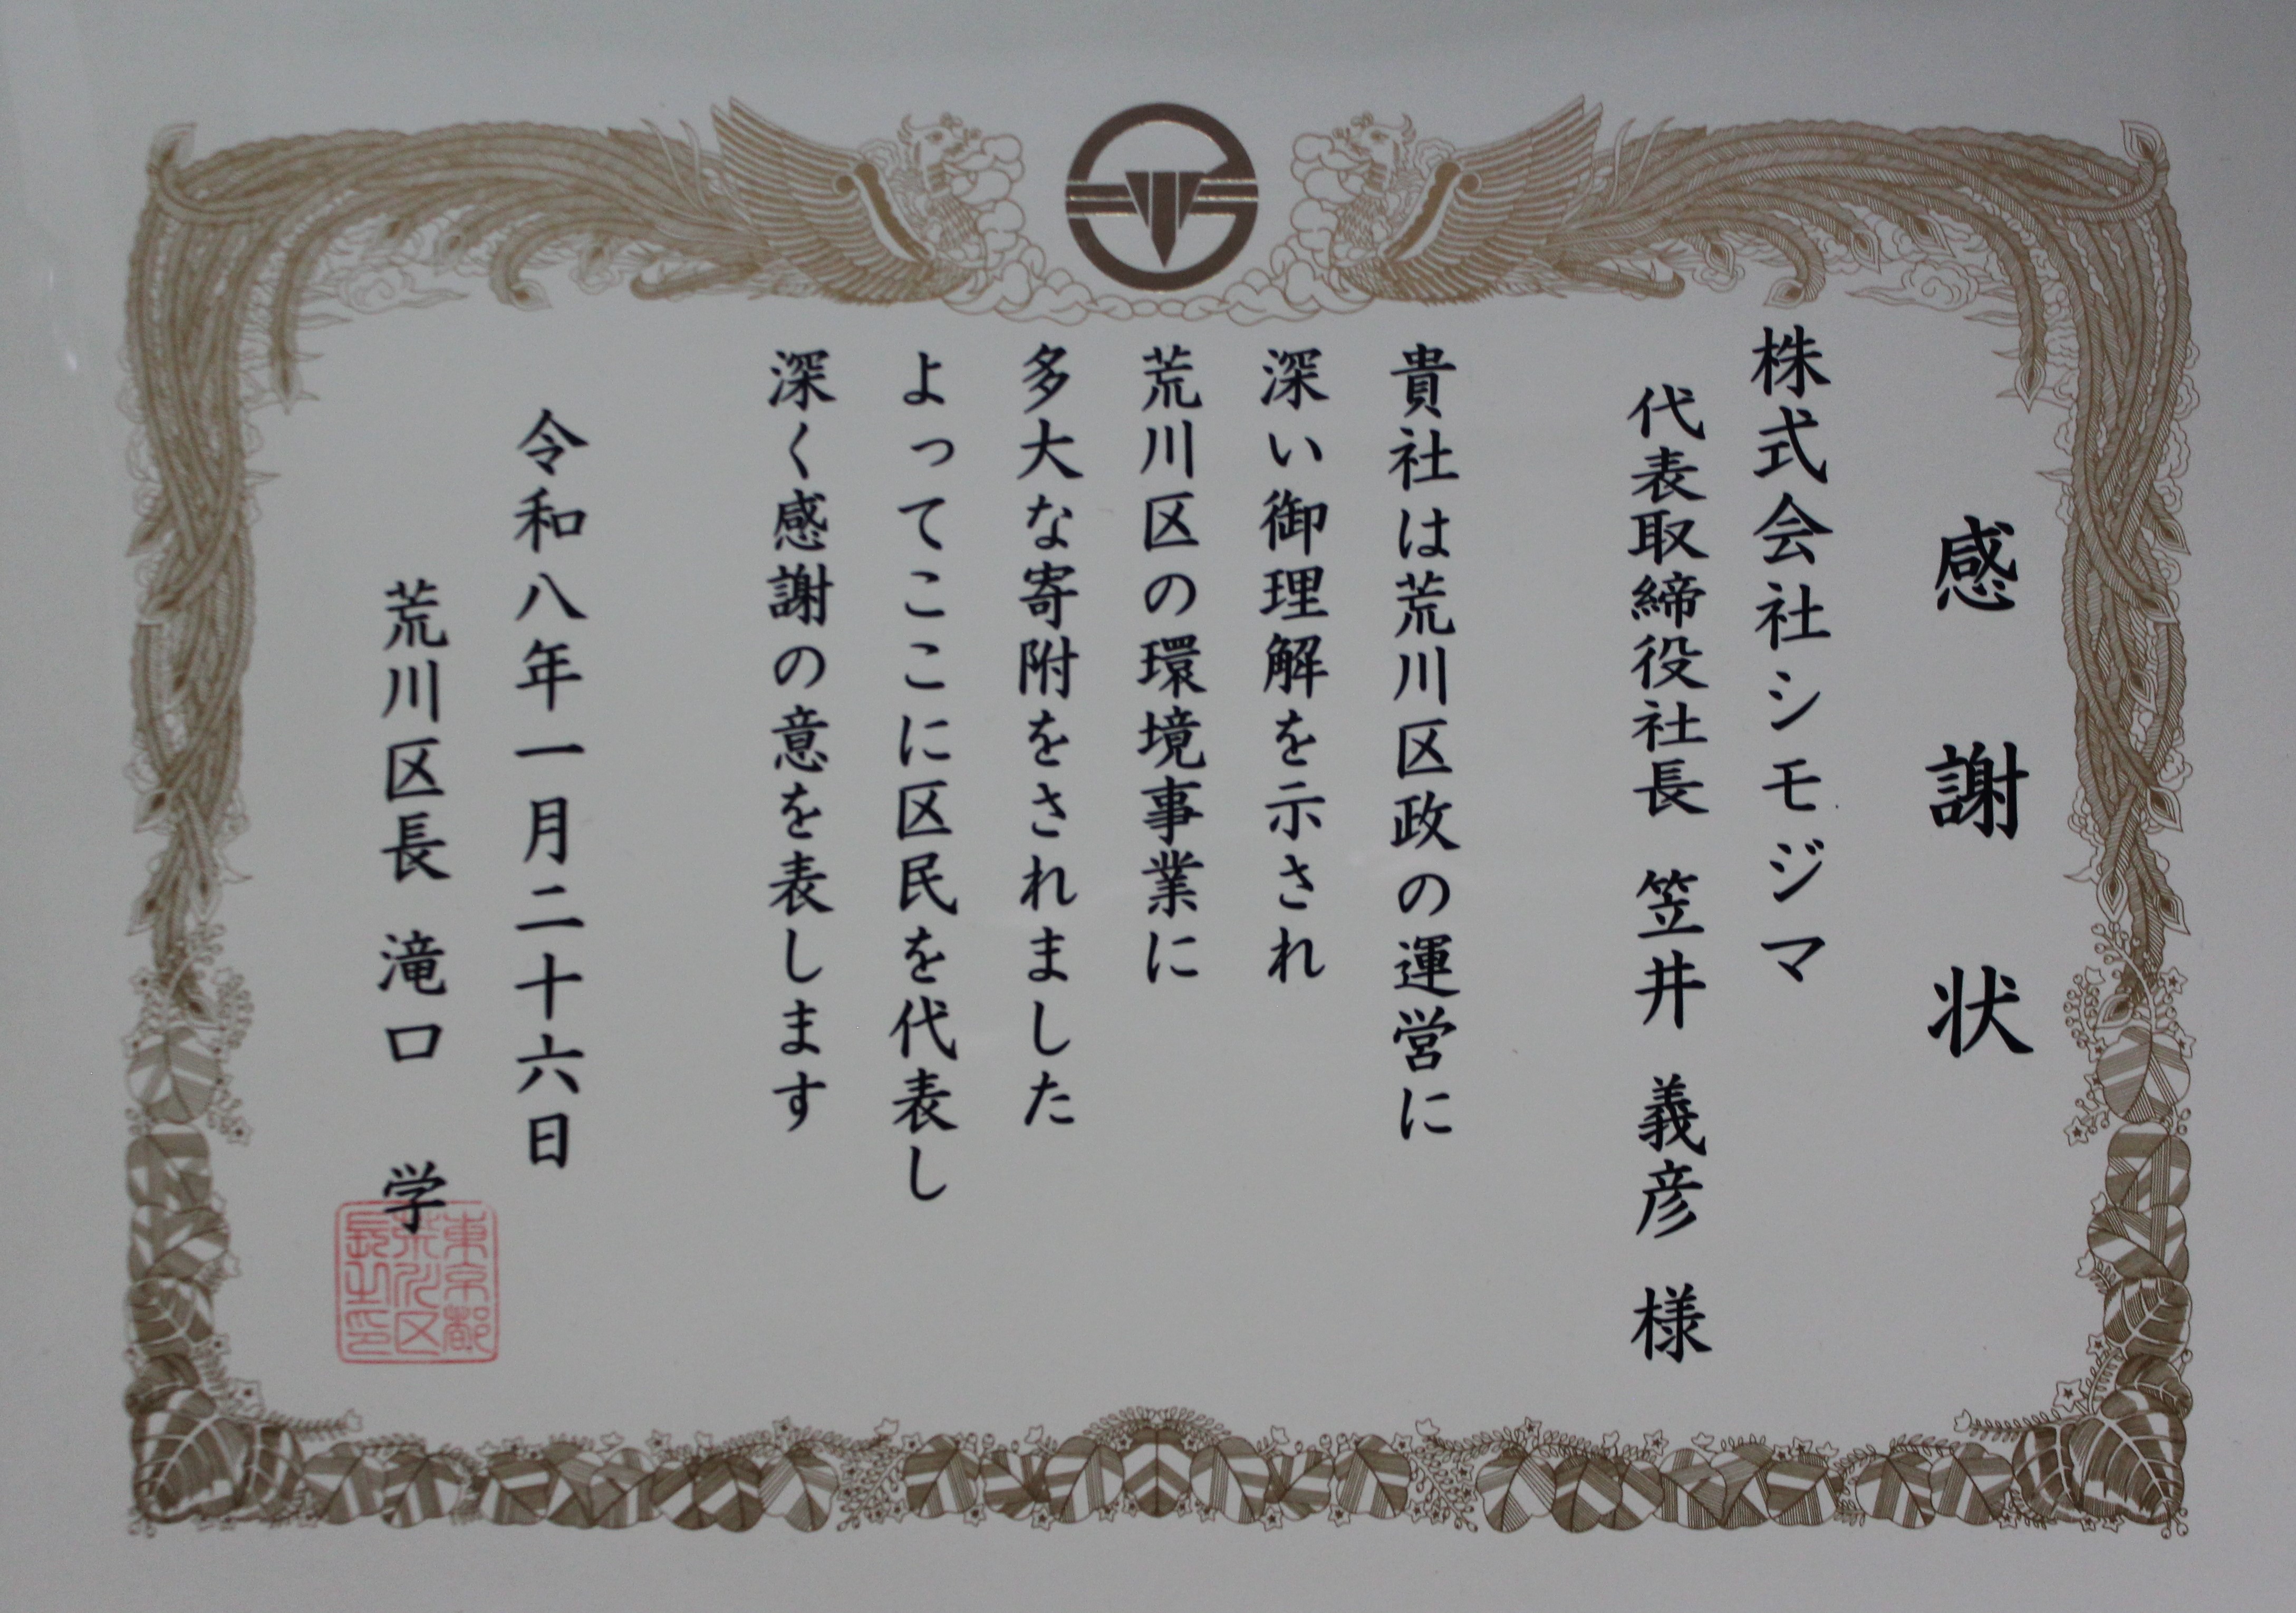 感謝状
株式会社シモジマ
代表取締役社長 笠井 義彦 様
貴社は荒川区政の運営に
深い御理解を示され
荒川区の環境事業に
多大な寄附をされました
よってここに区民を代表し
深く感謝の意を表します
令和八年一月二十六日
荒川区長 滝口 学
東京都
荒川区
長之印